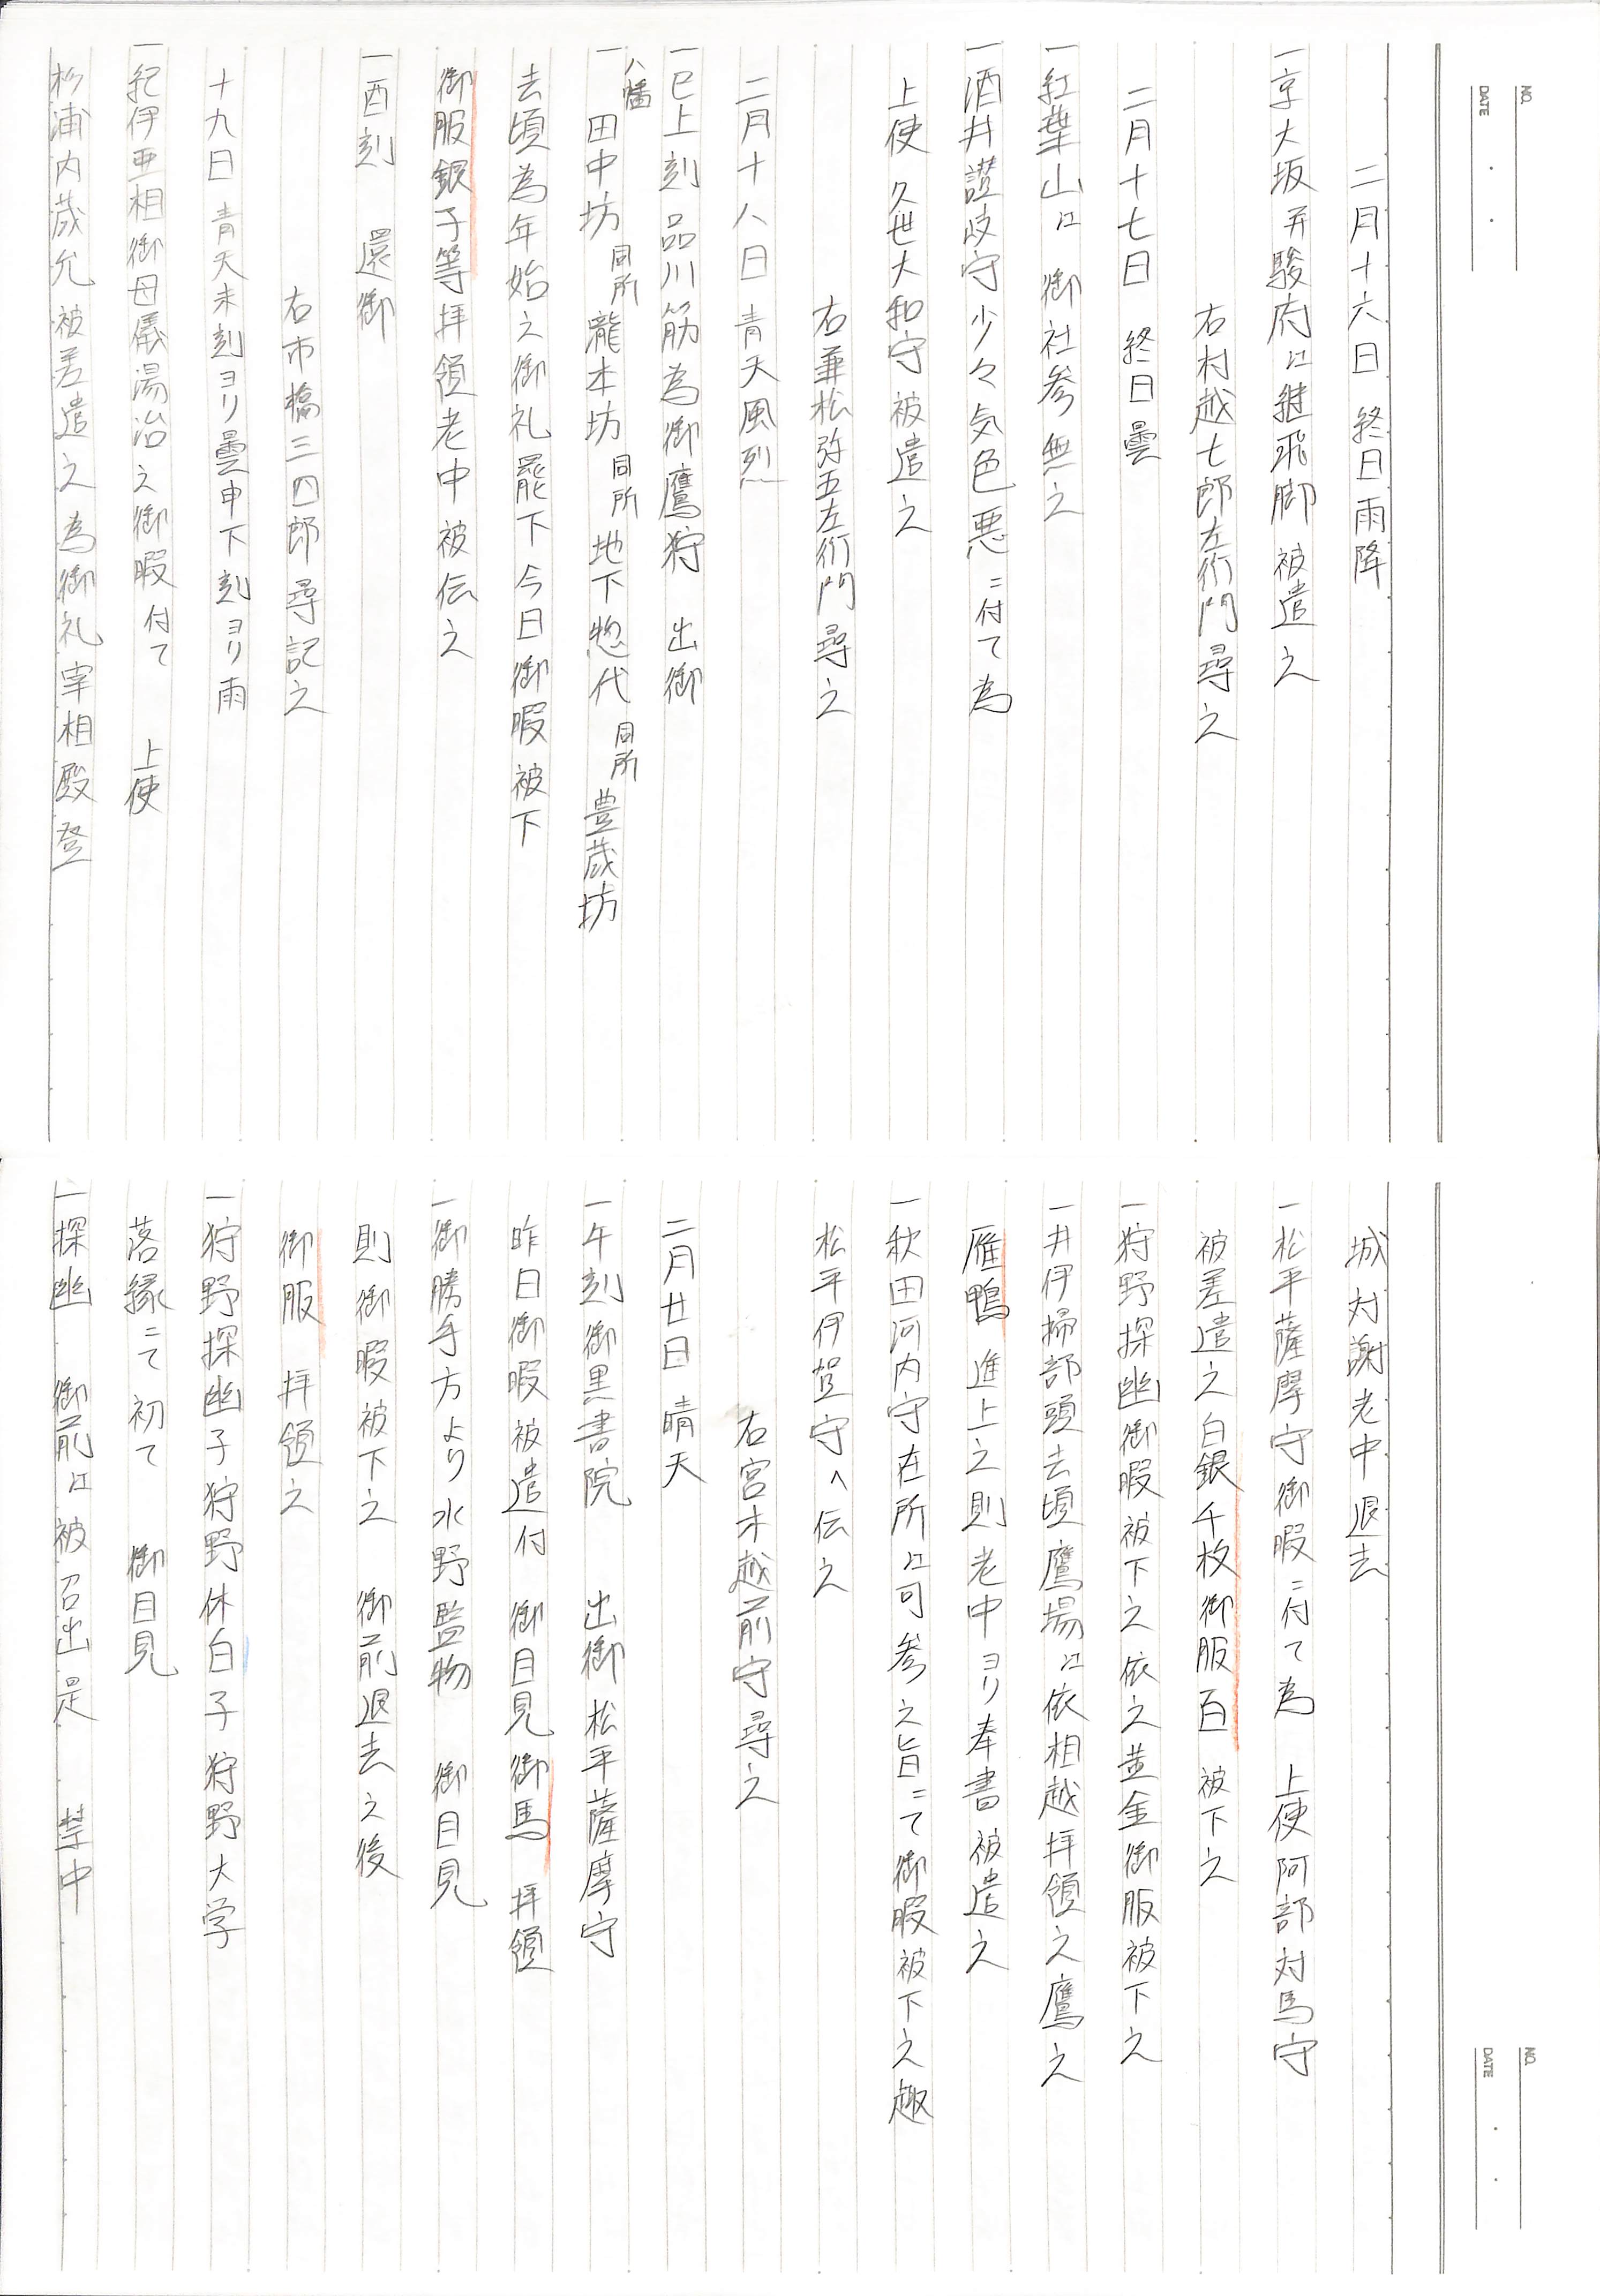 NO.
DATE
二月十六日 終日雨降
一京大坂并駿府江継飛脚 被遣之
右村越七郎左衛門尋之
二月十七日 終日曇
一紅葉山江 御社参無之
一酒井讃岐守少々気色悪ニ付て為
上使 久世大和守被遣之
右兼松弥五左衛門尋之
二月十八日 青天風烈
一巳上刻品川筋為御鷹狩 出御
一八幡田中坊 同所瀧本坊 同所地下惣代 同所豊蔵坊
去頃為年始之御礼罷下今日御暇被下
御服銀子等拝領老中被伝之
一酉刻 還御
右市橋三四郎尋記之
十九日 青天未刻ヨリ曇申下刻ヨリ雨
一紀伊亜相御母儀湯治之御暇付て 上使
杉浦内蔵允被差遣之為御礼宰相殿登
NO.
DATE
城対謝老中退去
一松平薩摩守御暇ニ付て為 上使阿部対馬守
被差遣之白銀千枚御服百 被下之
一狩野探幽御暇被下之依之黄金御服被下之
一井伊掃部頭去頃鷹場江依相越拝領之鷹之
雁鴨 進上之則老中ヨリ奉書被遣之
一秋田河内守在所江可参之旨ニて御暇被下之趣
松平伊賀守へ伝之
右宮木越前守尋之
二月廿日 晴天
一午刻御黒書院 出御松平薩摩守
昨日御暇被遣付 御目見御馬 拝領
一御勝手方より水野監物 御目見
則御暇被下之 御前退去之後
御服 拝領之
一狩野探幽子狩野休白子狩野大学
落縁ニて初て 御目見
一探幽 御前江被召出是 禁中